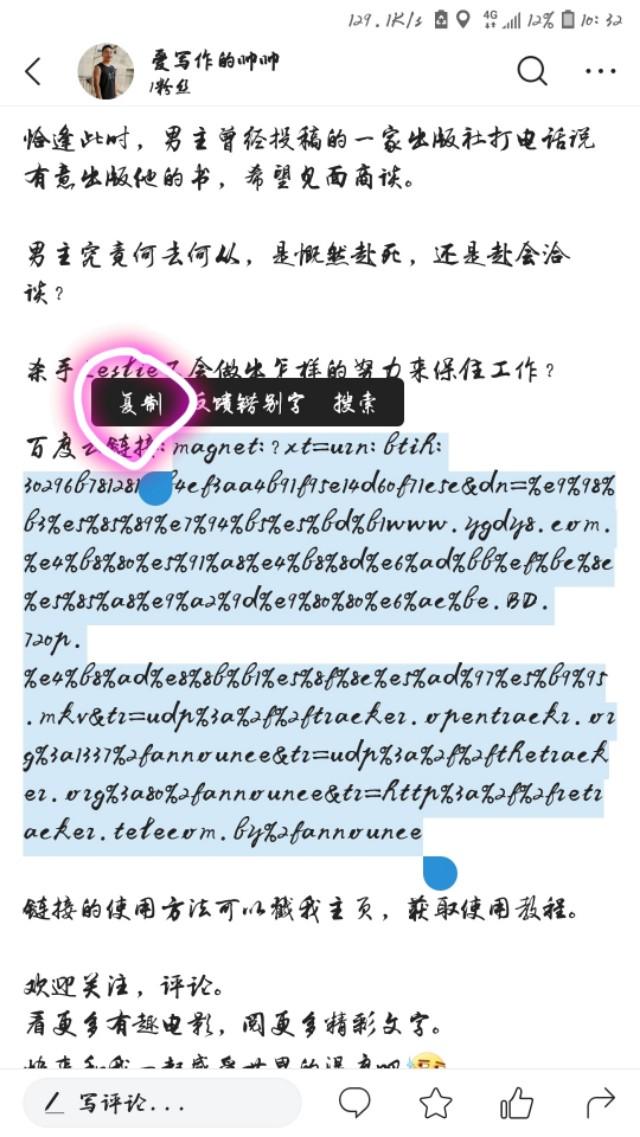 129.1K/s 4G 12% 10:32
爱写作的帅帅
1粉丝
恰逢此时，男主曾经投稿的一家出版社打电话说
有意出版他的书，希望见面商谈。
男主究竟何去何从，是慨然赴死，还是赴会洽
谈？
杀手Leslie又会做出怎样的努力来保住工作？
复制 反馈错别字 搜索
百度云链接：magnet:?xt=urn:btih:
%e9%98%
b3%e5%85%89%e7%94%b5%e5%bd%b1www.ygdy8.com.
%e4%b8%80%e5%91%a8%e4%b8%8d%e6%ad%bb%ef%bc%8c
%e5%85%a8%e9%a2%9d%e9%80%80%e6%ac%be.BD.
720p.
%e4%b8%ad%e8%8b%b1%e5%8f%8c%e5%ad%97%e5%b9%95
.mkv&tr=udp%3a%2f%2ftracker.opentrackr.or
g%3a1337%2fannounce&tr=udp%3a%2f%2fthetrack
er.org%3a80%2fannounce&tr=http%3a%2f%2fretr
acker.telecom.by%2fannounce
链接的使用方法可以戳我主页，获取使用教程。
欢迎关注，评论。
看更多有趣电影，阅更多精彩文字。
快来和我一起感受世界的温度吧
写评论...